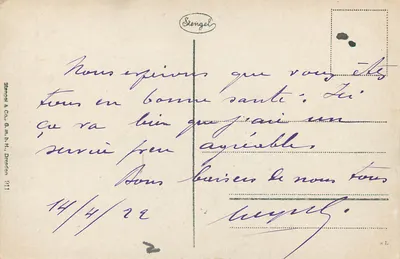 Stengel
Nous espérons que vous êtes
tous en bonne santé. Ici
ça va bien que j'aie un
service peu agréable.
Bons baisers de nous tous
14/4/22
2
Stengel & Co., G.m.b.H., Dresden